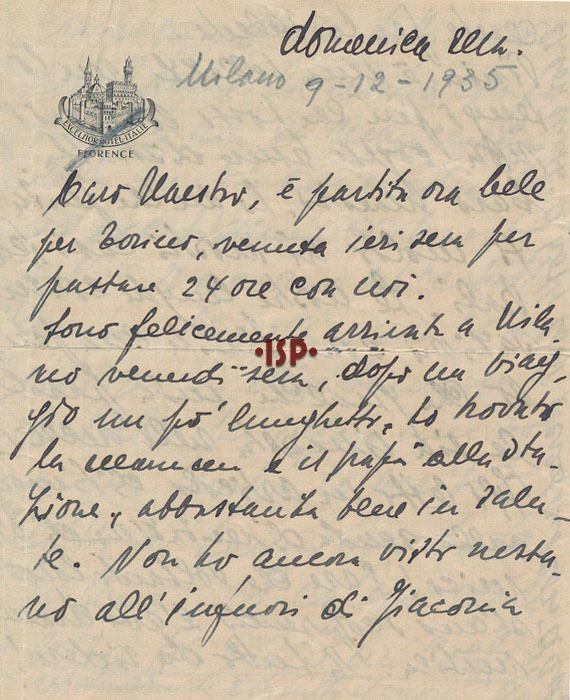 domenica sera.
Milano 9-12-1935
EXCELSIOR HOTEL-ITALIE
FLORENCE
Caro Maestro, è partita ora bele
per Torino, venuta ieri sera per
passare 24 ore con noi.
Sono felicemente arrivata a Mila-
·ISP·
no venerdì sera, dopo un viag-
gio un pò lunghetto, ho trovato
la mamma e il papà alla sta-
zione, abbastanza bene in salu-
te. Non ho ancora visto nessu-
no all'infuori di Giaconia